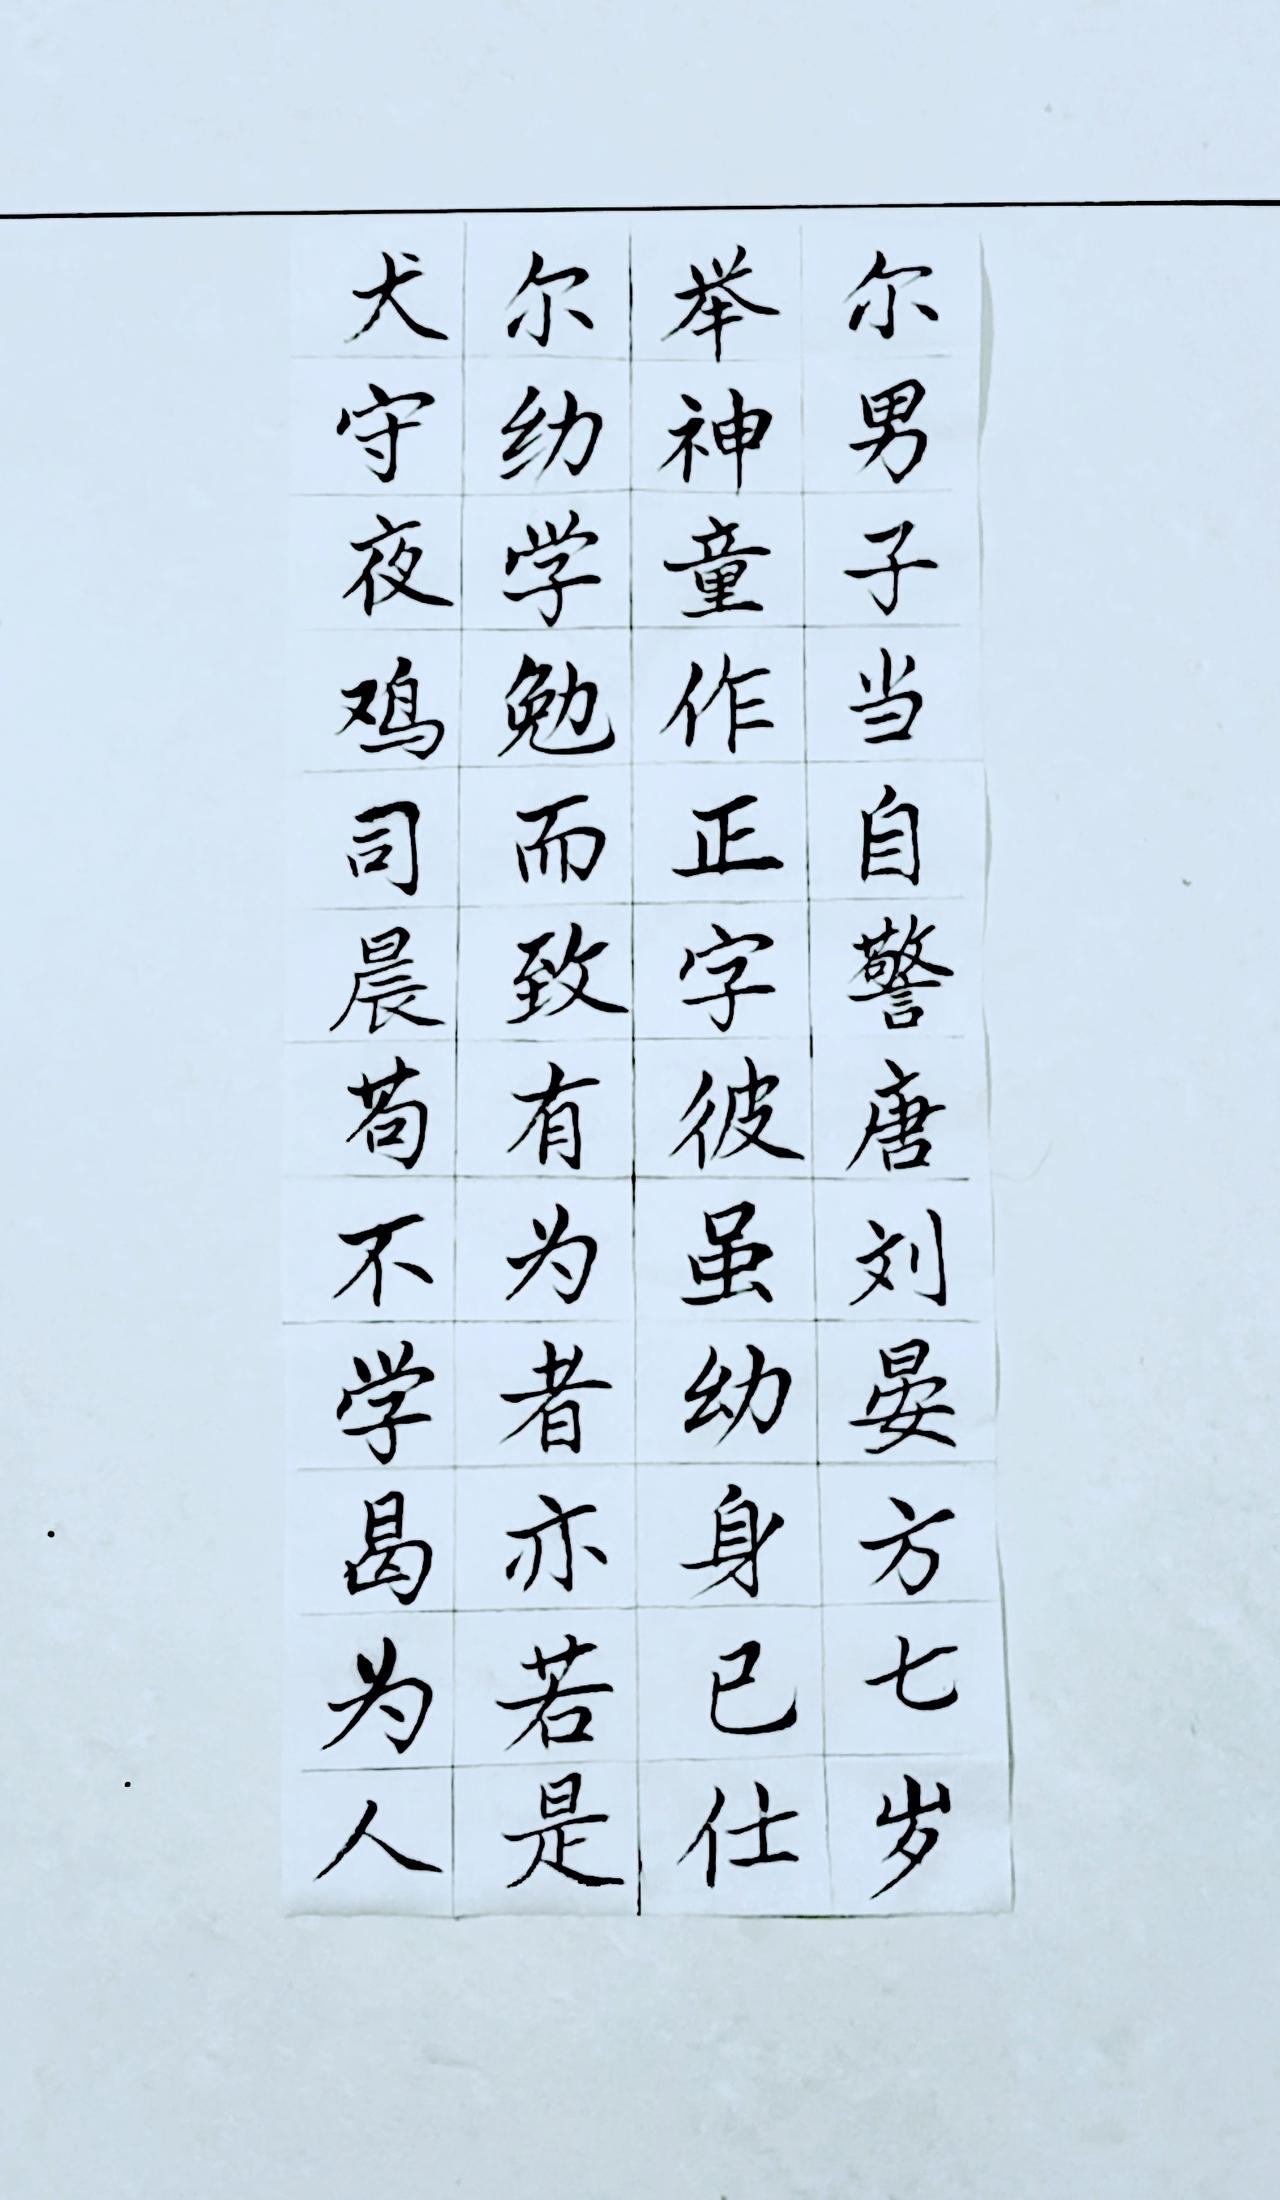 尔男子当自警唐刘晏方七岁
举神童作正字彼虽幼身已仕
尔幼学勉而致有为者亦若是
犬守夜鸡司晨苟不学曷为人